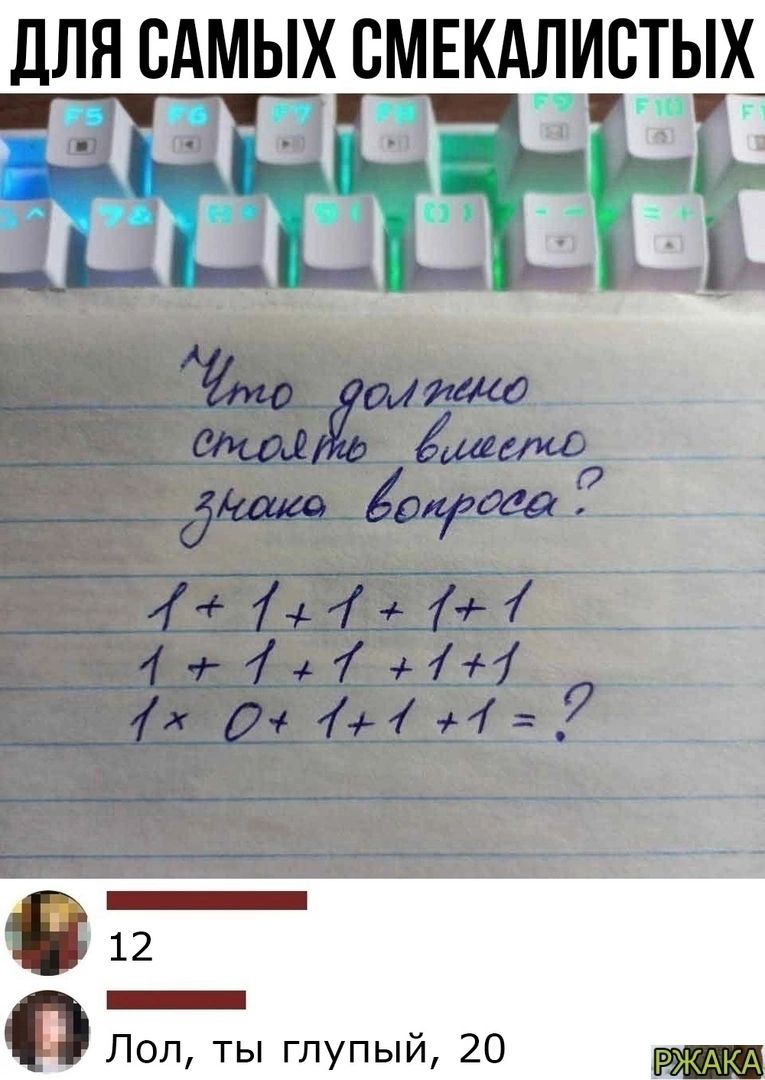 ДЛЯ САМЫХ СМЕКАЛИСТЫХ
F5 F6 F7 F8 F9 F10
^ 7 & 8 * 9 ( 0 ) - - = +
Что должно
стоять вместо
знака вопроса?
1 + 1 + 1 + 1 + 1
1 + 1 + 1 + 1 + 1
1 × 0 + 1 + 1 + 1 = ?
12
Лол, ты глупый, 20
РЖАКА